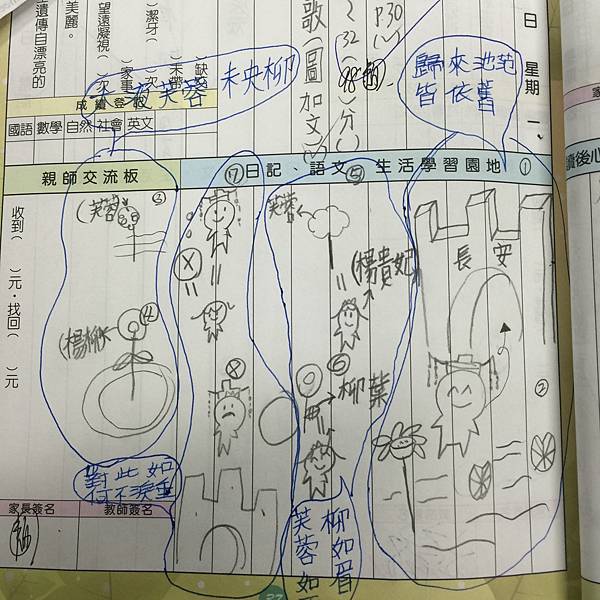 日 星期 一
P.30
歌(圖加文)
分(
望遠凝視(
次
潔牙(
次
家事(
美麗。
遺傳自漂亮的
成績登
國語 數學 自然 社會 英文
歸來池苑
皆依舊
芙蓉 未央柳
①
生活學習園地
⑤
日記、語文
⑰
親師交流板
長安
②
(楊貴妃
芙蓉
⑥
柳葉
芙蓉如
柳如眉
③
(芙蓉
④
(楊柳
對此如
何不淚垂
收到( )元,找回( )元
家長簽名
教師簽名
27
讀後心